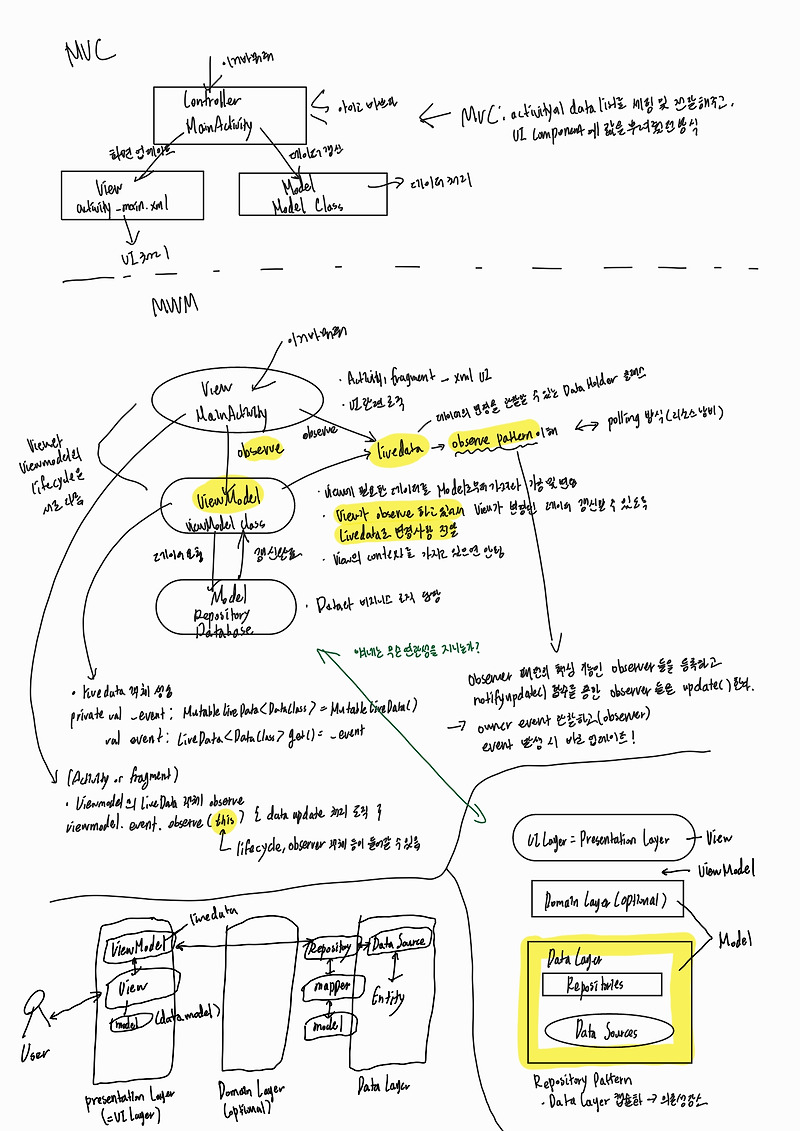 MVC
이벤트발생
Controller
MainActivity
MVC: activity에 data line로 세팅 및 전달해주고,
UI component에 값을 뿌려줬던 방식
화면 업데이트
데이터 갱신
View
activity_main.xml
Model
Model Class
데이터 처리
UI 처리
MVVM
이벤트발생
View
MainActivity
· Activity, fragment - xml UI
· UI 관련 로직
View와
Viewmodel의
lifecycle은
서로 다름
observe
observe
livedata
데이터의 변경을 관찰할 수 있는 Data Holder 클래스
observe pattern 이해
polling 방식 (리소스 낭비)
ViewModel
viewModel class
· View에 필요한 데이터를 Model로부터 가져다 가공 및 변환
· View가 observe 하고 있어서 View가 변경된 데이터 갱신할 수 있도록
livedata로 변경사항 전달
· View의 context를 가지고 있으면 안됨
데이터 요청
갱신완료
Model
Repository
Database
· Data와 비지니스 로직 담당
얘네는 무슨 연관성을 지니는가?
Observer 패턴의 핵심 기능인 observer 들을 등록하고
notifyupdate() 함수를 통한 observer 들은 update() 한다.
→ owner event 관찰하고 (observer)
event 발생 시 바로 업데이트!
· livedata 객체 생성
private val _event: MutableLiveData<DataClass> = MutableLiveData()
val event: LiveData<DataClass> get() = _event
(Activity or fragment)
· Viewmodel의 LiveData 객체 observe
viewmodel.event.observe(this) { data update 처리 로직 }
lifecycle, observer 객체 등이 들어갈 수 있음
UI Layer = Presentation Layer
View
ViewModel
Domain Layer (optional)
Model
Data Layer
Repositories
Data Sources
Repository Pattern
· Data Layer 캡슐화 →
livedata
ViewModel
View
model
(data model)
User
presentation Layer
(=UI Layer)
Domain Layer
(optional)
Repository
mapper
model
Data Source
Entity
Data Layer